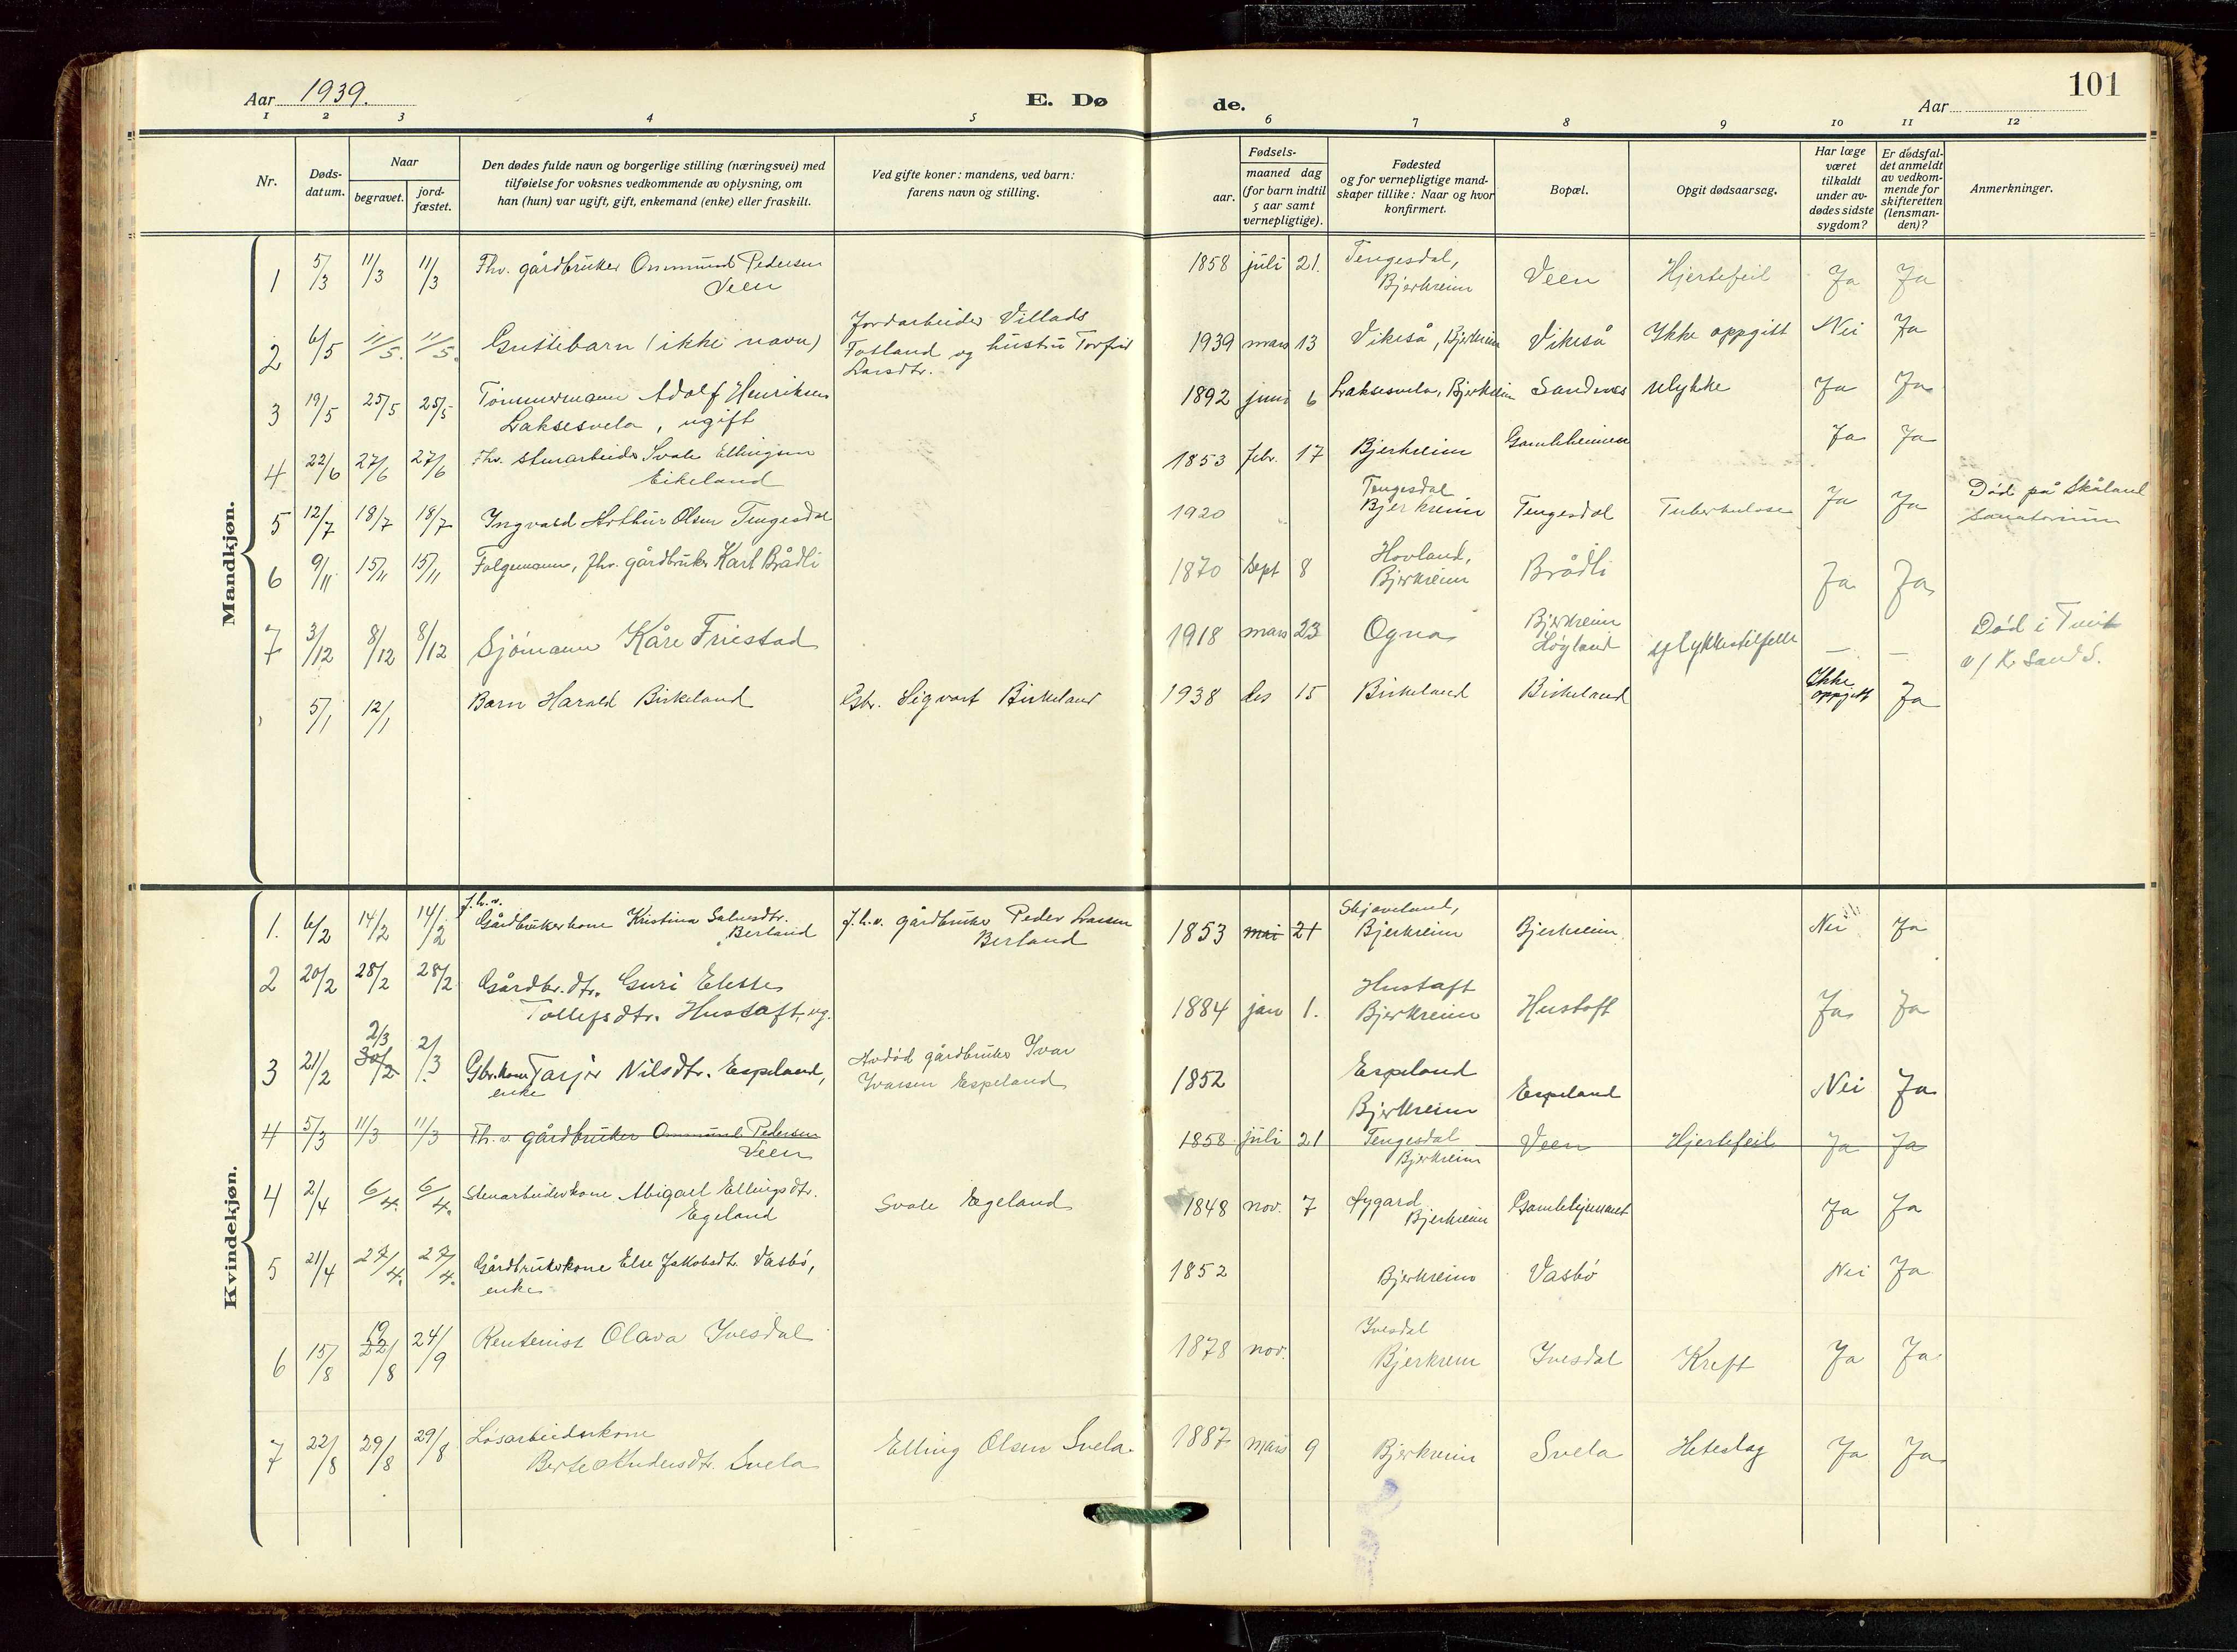 Aar 1939.
E. Dø
de.
Aar
101
1 2 3 4 5 6 7 8 9 10 11 12
Nr.
Døds-
datum.
Naar
begravet.
jord-
fæstet.
Den dødes fulde navn og borgerlige stilling (næringsvei) med
tilføielse for voksnes vedkommende av oplysning, om
han (hun) var ugift, gift, enkemand (enke) eller fraskilt.
Ved gifte koner: mandens, ved barn:
farens navn og stilling.
Fødsels-
aar.
maaned dag
(for barn indtil
5 aar samt
vernepligtige).
Fødested
og for vernepligtige mand-
skaper tillike: Naar og hvor
konfirmert.
Bopæl.
Opgit dødsaarsag.
Har læge
været
tilkaldt
under av-
dødes sidste
sygdom?
Er dødsfal-
det anmeldt
av vedkom-
mende for
skifteretten
(lensman-
den)?
Anmerkninger.
Mandkjøn.
1 5/3 11/3 11/3 Fhv. gårdbruker Ommund Pedersen
Veen
1858 juli 21. Tengesdal,
Bjerkreim Veen Hjertefeil Ja Ja
2 6/5 11/5. 11/5. Guttebarn (ikke navn)
Jordarbeider Villads
Fotland og hustru Torfrid
Larsdtr.
1939 mars 13 Vikeså, Bjerkreim Vikeså Ykke oppgitt Nei Ja
3 19/5 25/5 25/5 Tømmermann Adolf Henriksen
Laksesvela, ugift
1892 juni 6 Laksesvela, Bjerkreim Sandnes ulykke Ja Ja
4 22/6 27/6 27/6 Fhv. stenarbeider Svale Ellingsen
Eikeland
1853 febr. 17 Bjerkreim Gamleheimen Ja Ja
5 12/7 18/7 18/7 Ingvald Arthur Olsen Tengesdal
1920 Tengesdal
Bjerkreim Tengesdal Tuberkulose Ja Ja Død på Skåland
Sanatorium
6 9/11 15/11 15/11 Følgemann, fhv. gårdbruker Karl Brådli
1870 Sept 8 Hovland,
Bjerkreim Brådli Ja Ja
7 3/12 8/12 8/12 Sjømann Kåre Friestad
1918 mars 23 Ogna Bjerkreim
Høyland Ulykkestilfelle — — Død i Tveit
v/ Kr. Sand S.
5/1 12/1 Barn Harald Birkeland Gbr. Sigvart Birkeland
1938 des 15 Birkeland Birkeland Ykke
oppgitt Ja
Kvindekjøn.
1. 6/2 14/2 14/2 f.h.v.
Gårdbrukerkone Kristina Salvesdtr.
Berland
f.h.v. gårdbruker Peder Larsen
Berland
1853 mai 21 Skjæveland,
Bjerkreim Bjerkreim Nei Ja
2 20/2 28/2 28/2 Gårdbr.dtr. Guri Eleste
Tollefsdtr. Hustoft, ug.
1884 jan 1. Hustoft
Bjerkreim Hustoft Ja Ja
3 21/2 2/3 30/2 2/3. Gbr.kone Tarjer Nilsdtr. Espeland,
enke
Avdød gårdbruker Ivar
Ivarsen Espeland
1852 Espeland
Bjerkreim Espeland Nei Ja
4 5/3 11/3 11/3 Fh.v. gårdbruker Ommund Pedersen
Veen
1858 juli 21 Tengesdal
Bjerkreim Veen Hjertefeil Ja Ja
4 2/4 6/4. 6/4. Stenarbeiderkone Abigael Ellingsdtr.
Egeland
Svale Egeland
1848 nov. 7 Øygard
Bjerkreim Gamlehjemmet Ja Ja
5 21/4 27/4. 27/4. Gårdbrukerkone Else Jakobsdtr. Vasbø,
enke
1852 Bjerkreim Vasbø Nei Ja
6 15/8 19 22/8 24/9 Rentenist Olava Ivesdal
1878 nov. Ivesdal
Bjerkreim Ivesdal Kreft Ja Ja
7 22/8 29/8 29/8 Løsarbeiderkone
Berte Andersdtr. Svela
Elling Olsen Svela.
1887 mars 9 Bjerkreim Svela Heteslag Ja Ja